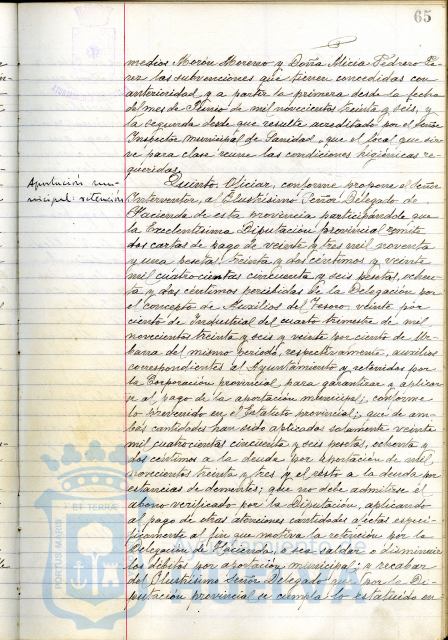 65
medios Morón Moreno y Doña Alicia Pedrero Pé-
rez las subvenciones que tienen concedidas con
anterioridad y a partir la primera desde la fecha
del mes de Junio de mil novecientos treinta y seis, y
la segunda desde que resulte acreditado por el Señor
Inspector municipal de Sanidad, que el local que sir-
ve para clase reune las condiciones higiénicas re-
queridas.
Aportación mu-
nicipal: retención
Quinto. Oficiar, conforme propone el Señor
Interventor, al Ilustrísimo Señor Delegado de
Hacienda de esta provincia participándole que
la Excelentísima Diputación provincial remite
dos cartas de pago de veinte y tres mil noventa
y una pesetas treinta y dos céntimos y veinte
mil cuatrocientas cincuenta y seis pesetas, ochen-
ta y dos céntimos percibidas de la Delegación por
el concepto de Auxilios del Tesoro: veinte por
ciento de Industrial del cuarto trimestre de mil
novecientos treinta y seis y veinte por ciento de Ur-
bana del mismo período, respectivamente, auxilios
correspondientes al Ayuntamiento y retenidos por
la Corporación provincial para garantizar y aplicar-
se al pago de la aportación municipal, conforme
lo prevenido en el Estatuto provincial; que de am-
bas cantidades han sido aplicadas solamente veinte
mil cuatrocientas cincuenta y seis pesetas, ochenta y
dos céntimos a la deuda por aportación de mil
novecientos treinta y tres y el resto a la deuda por
estancias de dementes; que no debe admitirse el
abono verificado por la Diputación, aplicando
al pago de otras atenciones cantidades afectas especí-
ficamente al fin que motiva la retención por la
Delegación de Hacienda, o sea, saldar o disminuir
los débitos por aportación municipal; y recabar
del Ilustrísimo Señor Delegado que por la Di-
putación provincial se cumpla lo estatuido en